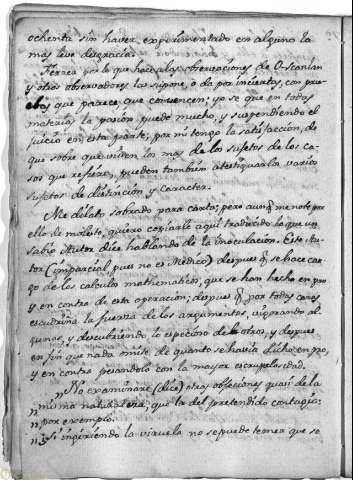 ochenta sin haver experimentado en alguno la
mas leve disgracia.
Ferrea por lo que hace a las observaciones de O-scanlan
y otros observadores las supone, ò da por inciertas, con prue-
bas que parece, que convencen; yo se que en todas
materias la pasion puede mucho, y suspendiendo el
juicio en esta parte; por mi tengo la satisfaccion, de
que sobre que viven los mas de los sujetos de los ca-
sos que refiere, pueden tambien atestiguarlos varios
sujetos de distincion y caracter.
Me dilato sobrado para carta; pero aunq me note por
ello de molesto, quiero copiarle aqui traducido lo que un
sabio Autor dice hablando de la inoculacion. Este Au-
tor (imparcial pues no es Medico) despues q se hace car-
go de los calculos mathematicos, que se han hecho en pro
y en contra de esta operacion; despues q por todas caras
escudriña la fuerza de los argumentos, vigorando al-
gunos, y descubriendo lo especioso de otros, y despues
en fin que nada omite de quanto se havia dicho en pro,
y en contra pesandolo con la mayor escrupulosidad.
" No examinare (dice) otras objeciones quasi de la
" misma naturaleza, que la del pretendido contagio:
" por exemplo.
" Si ingiriendo la viruela no se puede temer que se